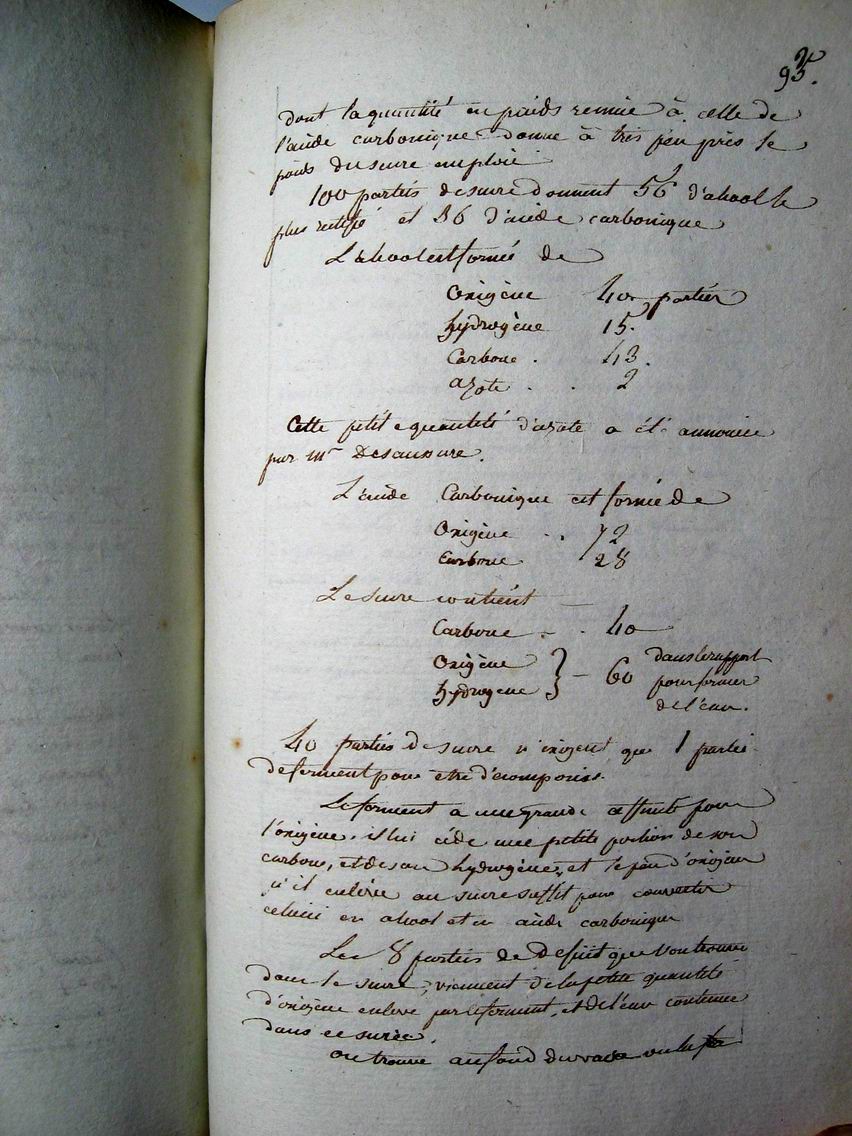 95.
dont la quantité en poids reunie à celle de
l'acide carbonique donne à tres peu près le
poids du sucre emploié
100 parties de sucre donnent 56 d'alcool le
plus rectifié et 36 d'acide carbonique
L'alcool est formé de
Oxigène 40. parties
hydrogène 15.
Carbone . 43.
azote . . 2
Cette petite quantité d'azote a été annoncée
par mr Desaussure.
L'acide Carbonique est formé de
Oxigène . . 72
Carbone 28
Le sucre contient —
Carbone . . 40
Oxigène } — 60 dans le rapport
hydrogene pour former
de l'eau.
40 parties de sucre n'exigent que 1 partie
de ferment pour être décomposées.
Le ferment a une grande affinité pour
l'oxigène, il lui cède une petite portion de son
carbone, et de son hydrogène, et le peu d'oxigene
qu'il enlève au sucre suffit pour convertir
celuici en alcool et en acide carbonique
Les 8 parties de deficit que l'on trouve
dans le sucre, viennent de la petite quantité
d'oxigene enlevé par le ferment, et de l'eau contenue
dans ce sucre.
on trouve au fond du vase ou la